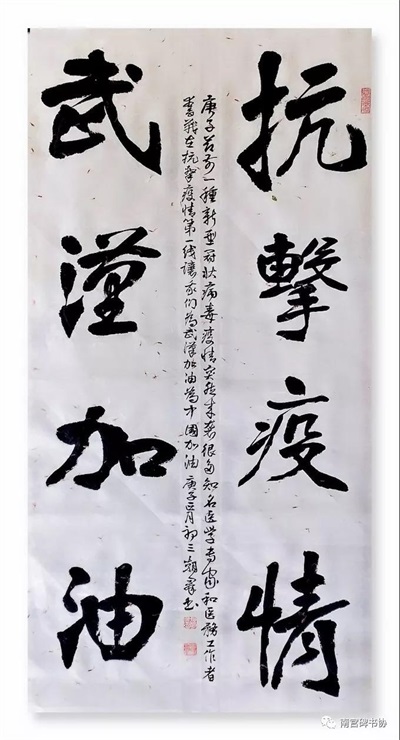 抗擊疫情
武漢加油
庚子前一種新型冠狀病毒疫情突然来袭很多知名医学专家和医務工作者
奮戰在抗擊疫情第一线讓我们為武漢加油為中国加油 庚子正月初三
南宫碑书协